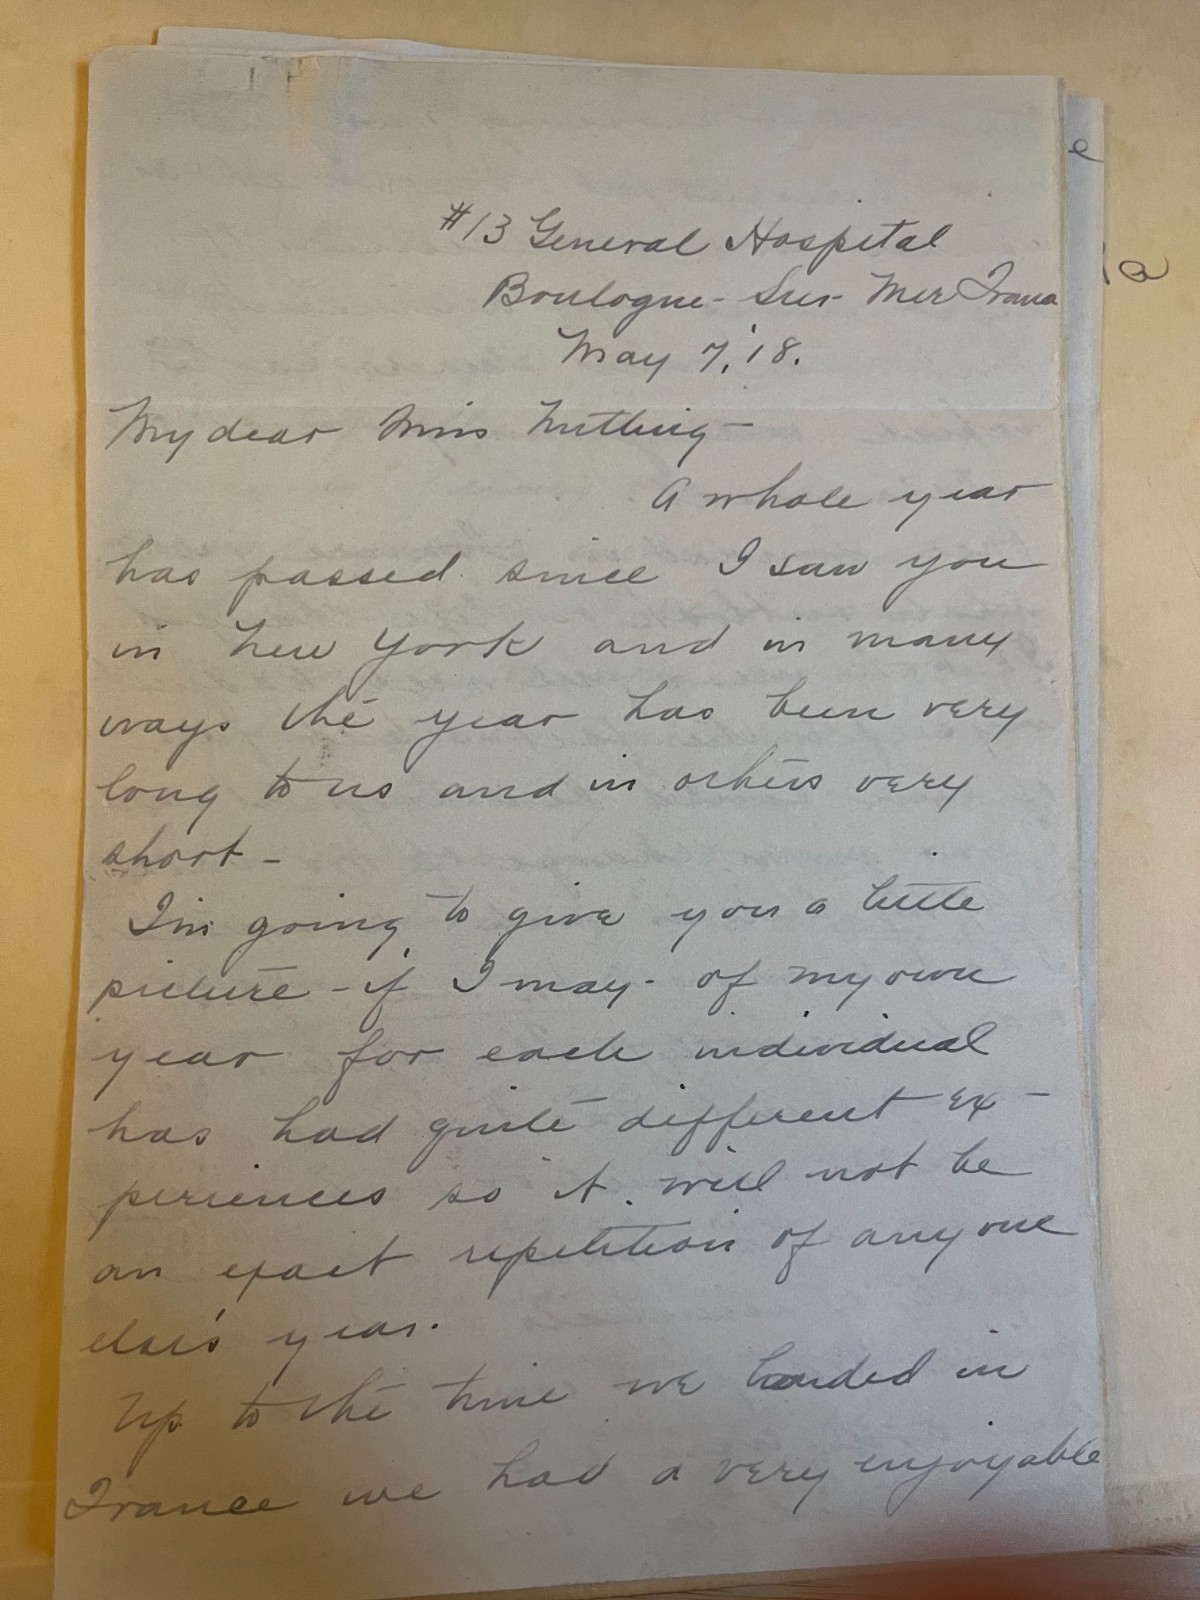 #13 General Hospital
Boulogne - Sur - Mer France
May 7, '18.
My dear Miss Nutting -
A whole year
has passed since I saw you
in New York and in many
ways the year has been very
long to us and in others very
short -
I'm going to give you a little
picture - if I may - of my own
year for each individual
has had quite different ex -
periences so it will not be
an exact repetition of anyone
else's year.
Up to the time we landed in
France we had a very enjoyable
e
a